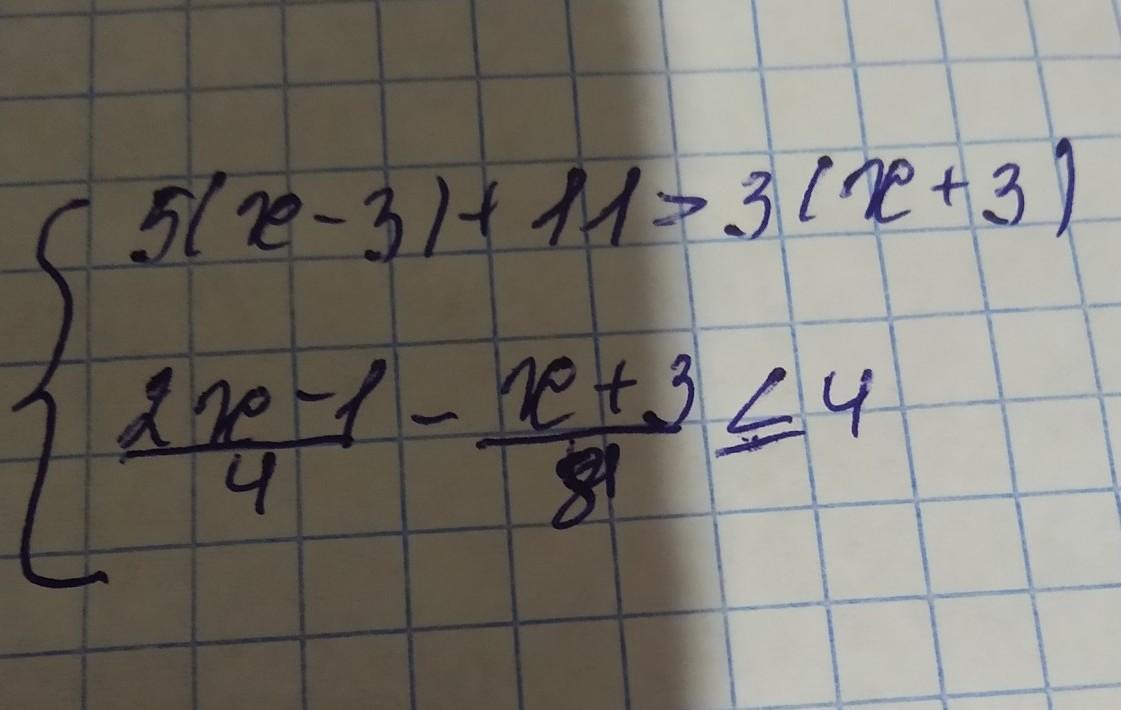 5(x-3)+11>3(x+3)
2x-1 - x+3 ≤ 4
4 8